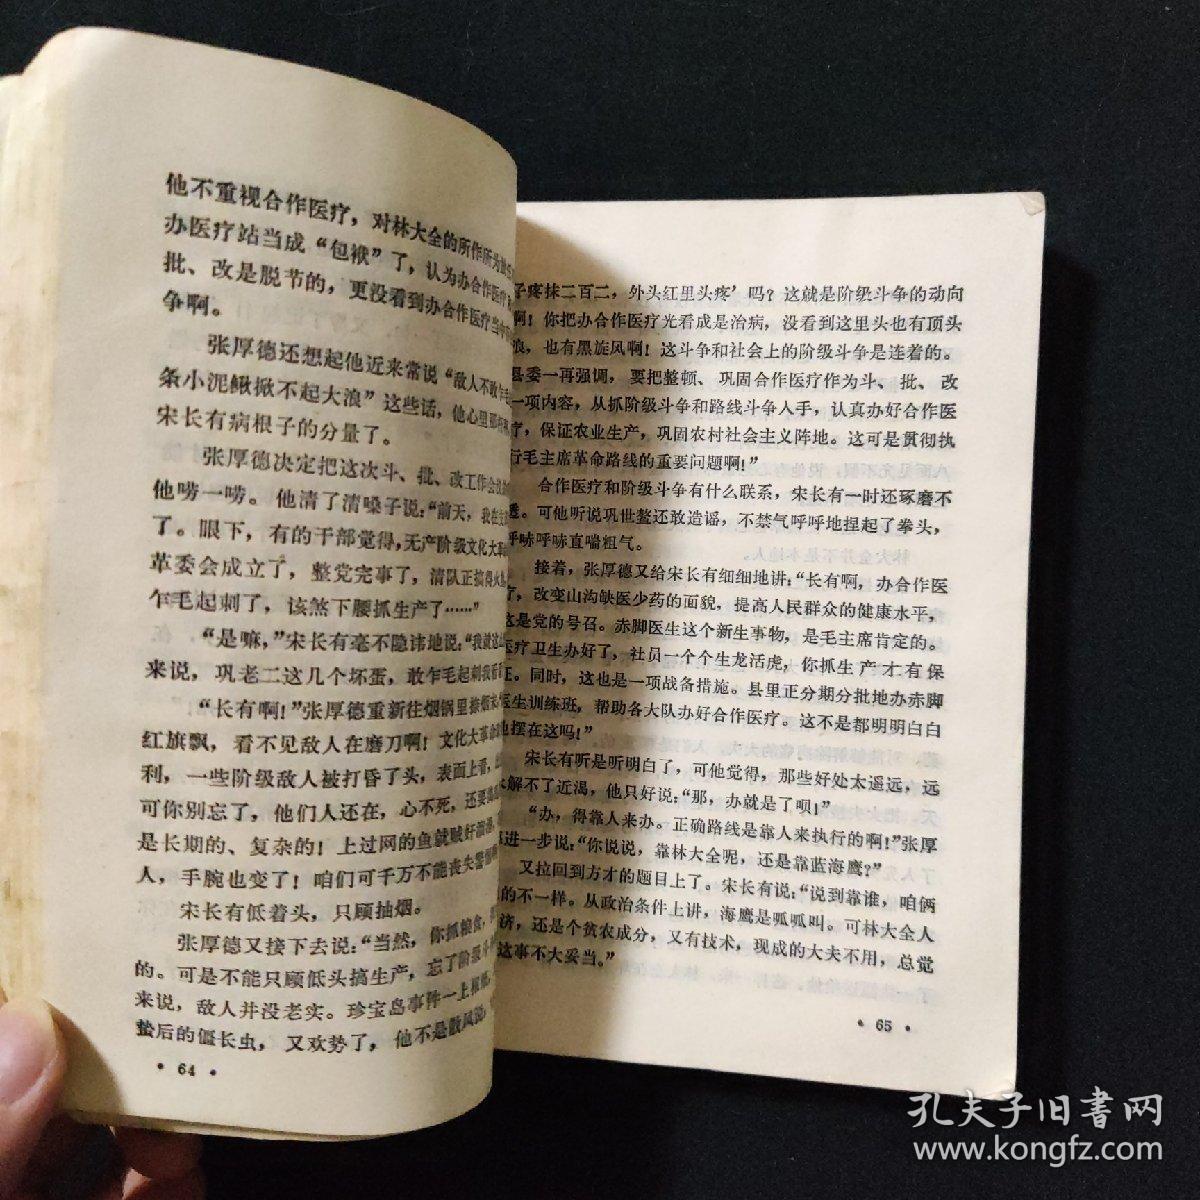 他不重视合作医疗，对林大全的所作所为
办医疗站当成“包袱”了，认为办合作医疗
批、改是脱节的，更没看到办合作医疗当
争啊。
张厚德还想起他近来常说“敌人不敢乍毛
条小泥鳅掀不起大浪”这些话，他心里那
宋长有病根子的分量了。
张厚德决定把这次斗、批、改工作会议
他唠一唠。他清了清嗓子说：“前天，我在
了。眼下，有的干部觉得，无产阶级文化大革
革委会成立了，整党完事了，清队正搞得火
乍毛起刺了，该煞下腰抓生产了……”
“是嘛，”宋长有毫不隐讳地说：“我说这
来说，巩老二这几个坏蛋，敢乍毛起刺我
“长有啊！”张厚德重新往烟锅里
红旗飘，看不见敌人在磨刀啊！文化大革
利，一些阶级敌人被打昏了头，表面上看，
可你别忘了，他们人还在，心不死，还要
是长期的、复杂的！上过网的鱼就贼奸溜滑，
人，手腕也变了！咱们可千万不能丧失警
宋长有低着头，只顾抽烟。
张厚德又接下去说：“当然，你抓粮食，
的。可是不能只顾低头搞生产，忘了阶级斗
来说，敌人并没老实。珍宝岛事件一上
蛰后的僵长虫，又欢势了，他不是散风说，
• 64 •
子疼抹二百二，外头红里头疼’吗？这就是阶级斗争的动向
啊！你把办合作医疗光看成是治病，没看到这里头也有顶头
浪，也有黑旋风啊！这斗争和社会上的阶级斗争是连着的。
县委一再强调，要把整顿、巩固合作医疗作为斗、批、改
一项内容，从抓阶级斗争和路线斗争入手，认真办好合作医
疗，保证农业生产，巩固农村社会主义阵地。这可是贯彻执
行毛主席革命路线的重要问题啊！”
合作医疗和阶级斗争有什么联系，宋长有一时还琢磨不
透。可他听说巩世鳌还敢造谣，不禁气呼呼地捏起了拳头，
呼哧呼哧直喘粗气。
接着，张厚德又给宋长有细细地讲：“长有啊，办合作医
疗，改变山沟缺医少药的面貌，提高人民群众的健康水平，
这是党的号召。赤脚医生这个新生事物，是毛主席肯定的。
医疗卫生办好了，社员一个个生龙活虎，你抓生产才有保
证。同时，这也是一项战备措施。县里正分期分批地办赤脚
医生训练班，帮助各大队办好合作医疗。这不是都明明白白
地摆在这吗！”
宋长有听是听明白了，可他觉得，那些好处太遥远，远
水解不了近渴，他只好说：“那，办就是了呗！”
“办，得靠人来办。正确路线是靠人来执行的啊！”张厚
德进一步说：“你说说，靠林大全呢，还是靠蓝海鹰？”
又拉回到方才的题目上了。宋长有说：“说到靠谁，咱俩
的不一样。从政治条件上讲，海鹰是呱呱叫。可林大全人
济，还是个贫农成分，又有技术，现成的大夫不用，总觉
这事不大妥当。”
• 65 •
孔夫子旧書网
www.kongfz.com